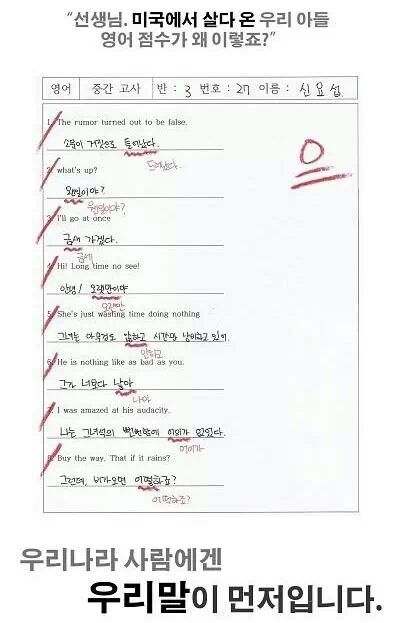 “선생님. 미국에서 살다 온 우리 아들
영어 점수가 왜 이렇죠?”
영어 중간 고사 반 : 3 번호 : 27 이름 : 신요섭
0
1. The rumor turned out to be false.
소문이 거짓으로 들어났다.
드러났다.
2. what's up?
왠일이야?
웬일이야?
3. I'll go at once
금새 가겠다.
금세
4. Hi! Long time no see!
안녕! 오랫만이야
오랜만
5. She's just wasting time doing nothing
그녀는 아무것도 않하고 시간만 낭비하고 있어.
안하고
6. He is nothing like as bad as you.
그가 너보다 낳아
나아
7. I was amazed at his audacity.
나는 그녀석의 뻔뻔함에 어의가 없었다.
어이가
8. Buy the way. That if it rains?
그런데, 비가오면 어떻하죠?
어떡하죠?
우리나라 사람에겐
우리말이 먼저입니다.